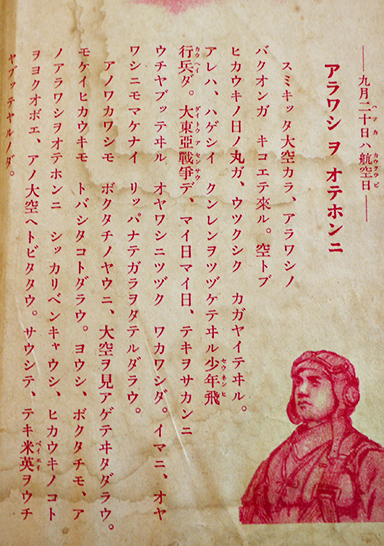 ――九月二十日ハ航空日――
アラワシ ヲ オテホンニ
スミキッタ大空カラ、アラワシノ
バクオンガ キコエテ來ル。空トブ
ヒカウキノ日ノ丸ガ、ウツクシク カガヤイテヰル。
アレハ、ハゲシイ クンレンヲツヅケテヰル少年飛
行兵ダ。大東亞戰爭デ、マイ日マイ日、テキヲサカンニ
ウチヤブッテヰル オヤワシニツヅク ワカワシダ。イマニ、オヤ
ワシニモマケナイ リッパナテガラヲタテルダラウ。
アノワカワシモ ボクタチノヤウニ、大空ヲ見アゲテヰタダラウ。
モケイヒカウキモ トバシタコトダラウ。ヨウシ、ボクタチモ、ア
ノアラワシヲオテホンニ シッカリベンキャウシ、ヒカウキノコト
ヲヨクオボエ、アノ大空ヘトビタタウ。サウシテ、テキ米英ヲウチ
ヤブッテヤルノダ。